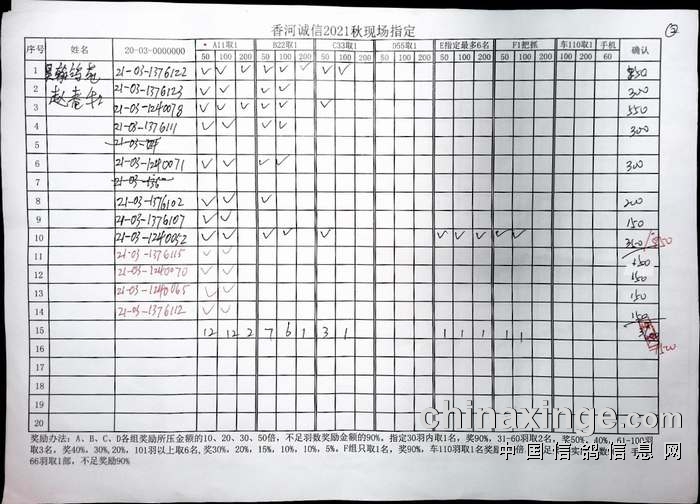 香河诚信2021秋现场指定
②
序号 姓名 20-03-0000000 A11取1 B22取1 C33取1 D55取1 E指定最多6名 F1把抓 车110取1 手机 确认
50 100 200 50 100 200 50 100 200 50 100 200 50 100 200 50 100 200 50 100 60
1 21-03-1376122 ✓ ✓ ✓ ✓ ✓ ✓ ✓ ✓
2 21-03-1376123 ✓ ✓ ✓ ✓ 300
3 21-03-1240078 ✓ ✓ ✓ ✓ ✓ ✓ 550
4 21-03-1376111 ✓ ✓ ✓ ✓ 300
5
6 21-03-1240071 ✓ ✓ ✓ ✓ 300
7
8 21-03-1376102 ✓ ✓ ✓ 200
9 21-03-1376107 ✓ ✓ 150
10 21-03-1240052 ✓ ✓ ✓ ✓ ✓ ✓ ✓ ✓ ✓ ✓
11 21-03-1376115 ✓ ✓
12 21-03-1240070 ✓ ✓ 150
13 21-03-1240065 ✓ ✓ 150
14 21-03-1376112 ✓ ✓ 150
15 12 12 2 7 6 1 3 1 1 1 1 1 1
16
17
18
19
20
奖励办法：A、B、C、D各组奖励所压金额的10、20、30、50倍，不足羽数奖励金额的90%，指定30羽内取1名，奖90%，31-60羽取2名，奖50%、40%，61-100羽
取3名，奖40%、30%、20%，101羽以上取6名，奖30%、20%、15%、10%、10%、5%，F组只取1名，奖90%，车110羽取1名奖励
66羽取1部，不足奖励90%
chinaxinge.com
中国信鸽信息网